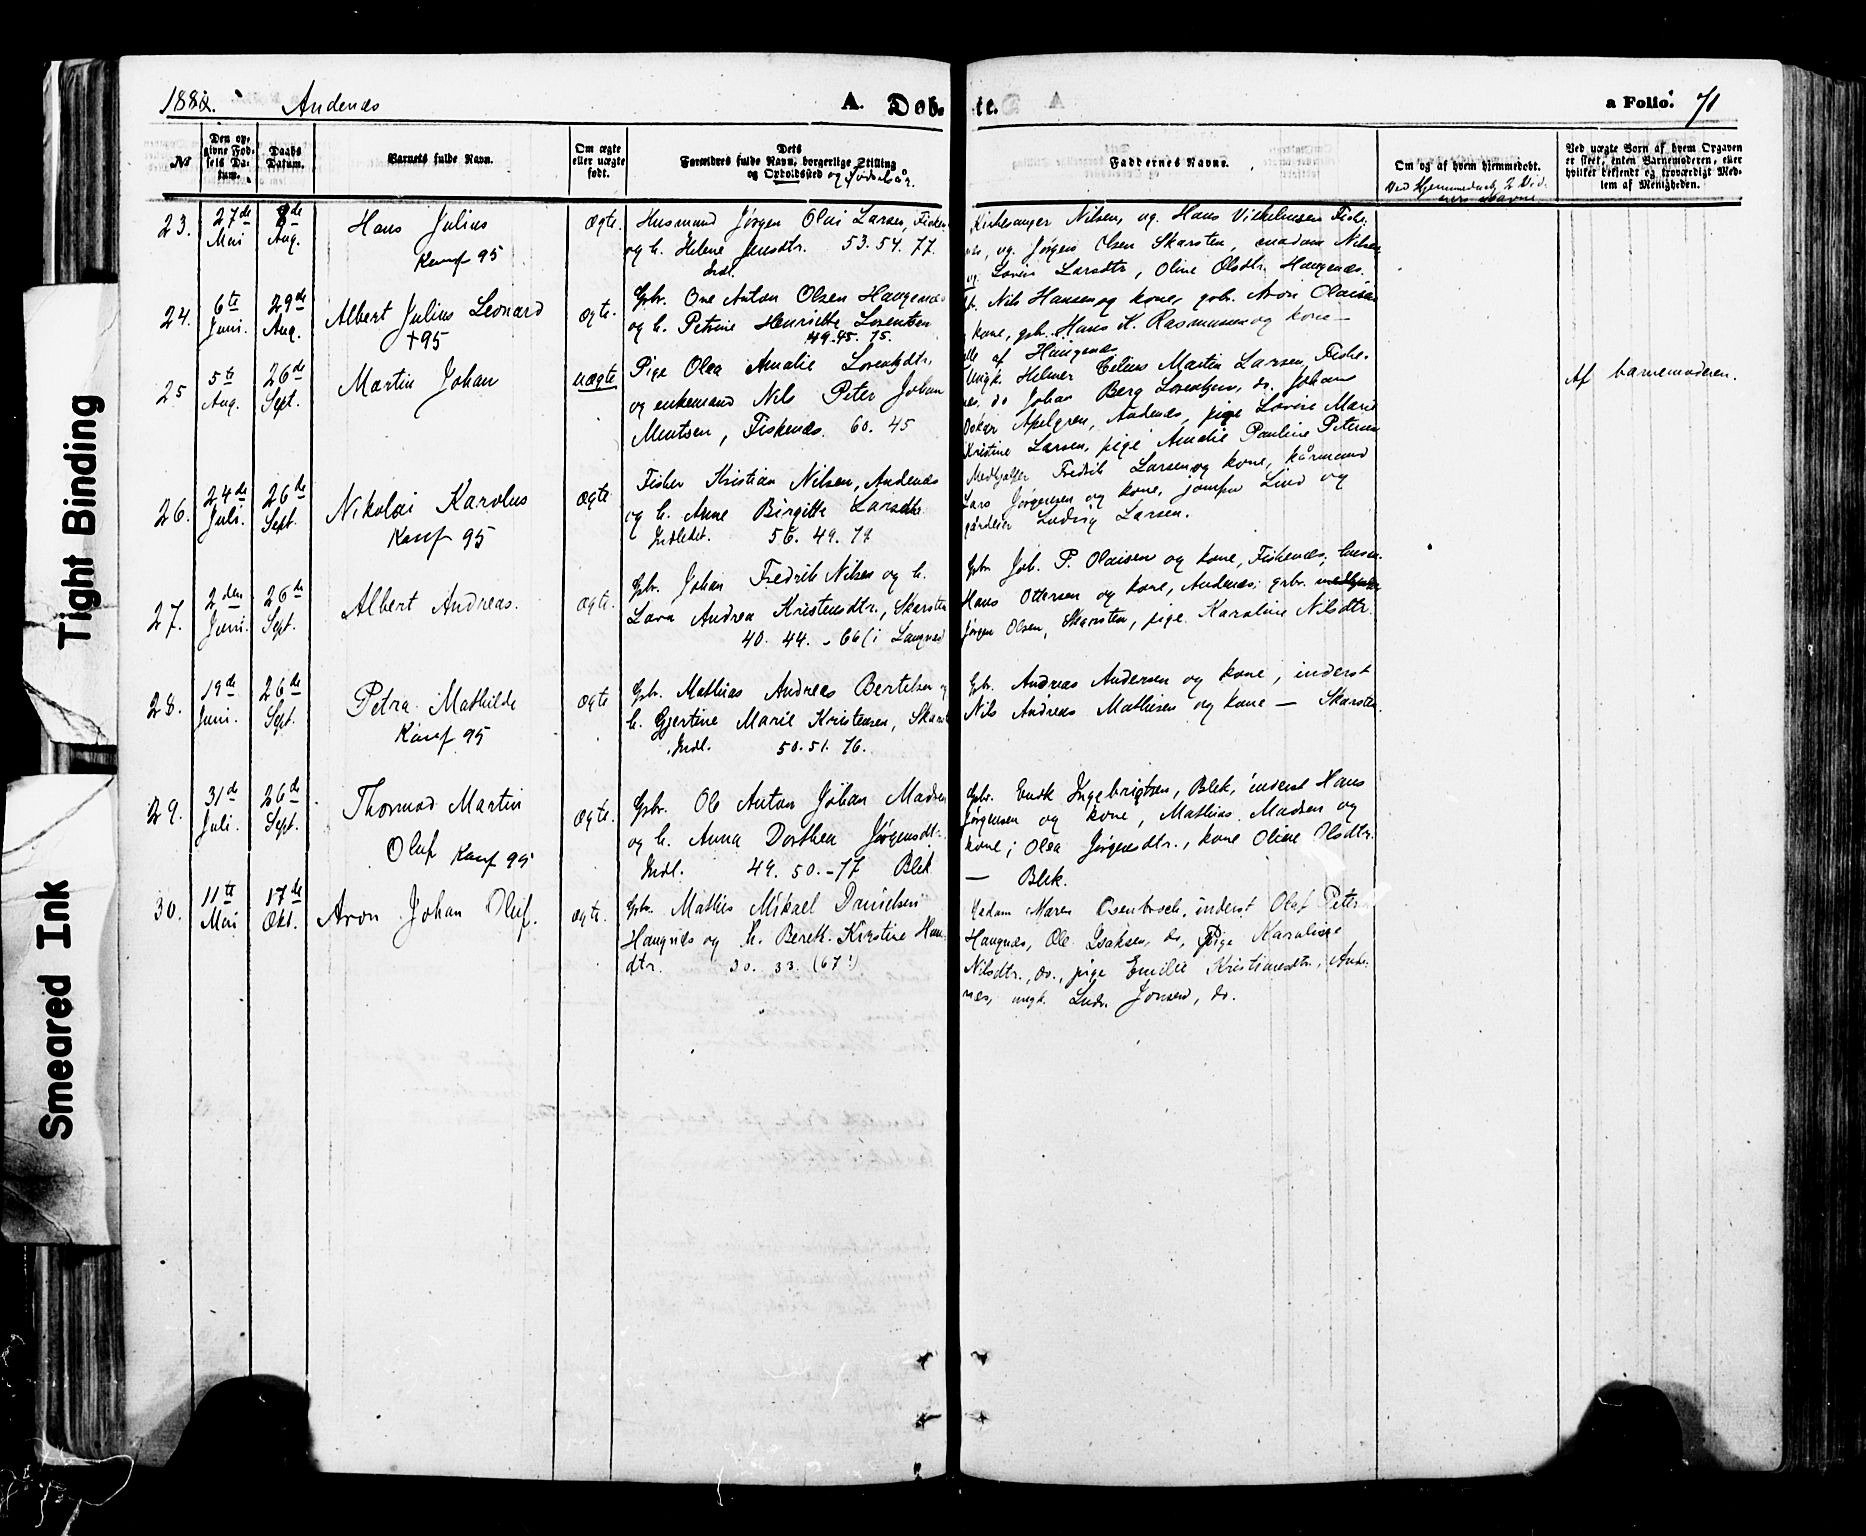 1880. Andenæs A. Døb- te. a Folio. 71
No
Den opgivne Fødsels Datum.
Daabs Datum.
Barnets fulde Navn.
Om ægte eller uægte født.
Dets Forældres fulde Navn, borgerlige Stilling og Opholdssted og Fødselsår.
Faddernes Navne.
Om og af hvem hjemmedøbt.
Ved Hjemmedaab, 2 Vidners Navne
Ved uægte Børn af hvem Opgaven er skeet, enten Barnemoderen, eller hvilket bekjendt og troværdigt Medlem af Menigheden.
23. 27de Mai 8de Aug. Hans Julius Konf 95 Ægte.
Husmand Jørgen Olai Larsen, Fiske-
og h. Helene Jensdtr. 53. 54. 77.
Indl.
Kirkesanger Nilsen, ug. Hans Vilhelmsen Fiske-
næs, ug. Jørgen Olsen Skarsten, madam Nilsen
ug. Lovise Larsdtr, Oline Olsdtr. Haugnæs.
24. 6te Juni 29de Aug. Albert Julius Leonard +95 Ægte.
Gbr. Ove Anton Olsen Haugenæs
og h. Petrine Henriette Lorentsen
49. 45. 75.
Nils Hansen og kone, gbr. Aron Olaisen
kone, gbr. Hans K. Rasmussen og kone —
alle af Haugenæs
25 5te Aug. 26de Sept. Martin Johan uægte
Pige Olea Amalie Lorentsdtr.
og enkemand Nils Peter Johan
Mentsen, Fiskenæs. 60. 45
Ungk. Helmer Martin Larsen, Fiske-
næs, do Johan Berg Lorentsen, do. Johan
Oskar Apelgren, Andenæs, pige Lovise Marie
Kristine Larsen, pige Amalie Pauline Petersen
Af barnemoderen.
26. 24de Juli. 26de Sept. Nikolai Karolus Konf 95 Ægte
Fisker Kristian Nilsen, Andenæs
og h. Anne Birgitte Larsdtr.
Indledet. 56. 49. 79
Medhjælper Fredrik Larsen og kone, kårmand
Lars Jørgensen og kone, jomfru Lind og
gårdeier Ludvig Larsen.
27. 2den Juni. 26de Sept. Albert Andreas. Ægte.
Gbr. Johan Fredrik Nilsen og h.
Lava Andrea Kristensdtr., Skarsten
40. 44. - 66 (i Langnes
Gbr. Joh. P. Olaisen og kone, Fiskenæs;
Hans Ottersen og kone, Andenæs; gbr.
Jørgen Olsen, Skarsten, pige Karoline Nilsdtr.
28. 19de Juni. 26de Sept. Petra Mathilde Konf 95 Ægte
Gbr. Mathias Andreas Bertelsen og
h. Gjertine Marie Kristensen, Skarst
Indl. 50. 51. 76.
Gbr. Andreas Andersen og kone, inderst
Nils Andreas Mathisen og kone — Skarsten.
29. 31de Juli. 26de Sept. Thormod Martin
Oluf Konf 95 Ægte.
Gbr. Ole Anton Johan Madsen
og h. Anna Dorthea Jørgensdtr.
Indl. 49. 50. - 77 Blek
Gbr. Enok Ingebrigtsen, Blek, inderst Hans
Jørgensen og kone, Mathias Madsen og
kone; Olea Jørgensdtr., kone Oline Olsdtr.
— Blek.
30. 11te Mai 17de Okt. Aron Johan Oluf. Ægte.
Gbr. Mathis Mikael Danielsen
Haugnæs og h. Bereth Kirstine Han-
dtr. 30. 33. (67!)
Madam Maren Osenbroch, inderst Olaf Peters
Haugnæs, Ole Isaksen, do, pige Karoline
Nilsdtr., do., pige Emilie Kristinesdtr., Ande-
næs, ungk. Ludv. Jonsen, do.
Tight Binding
Smeared Ink